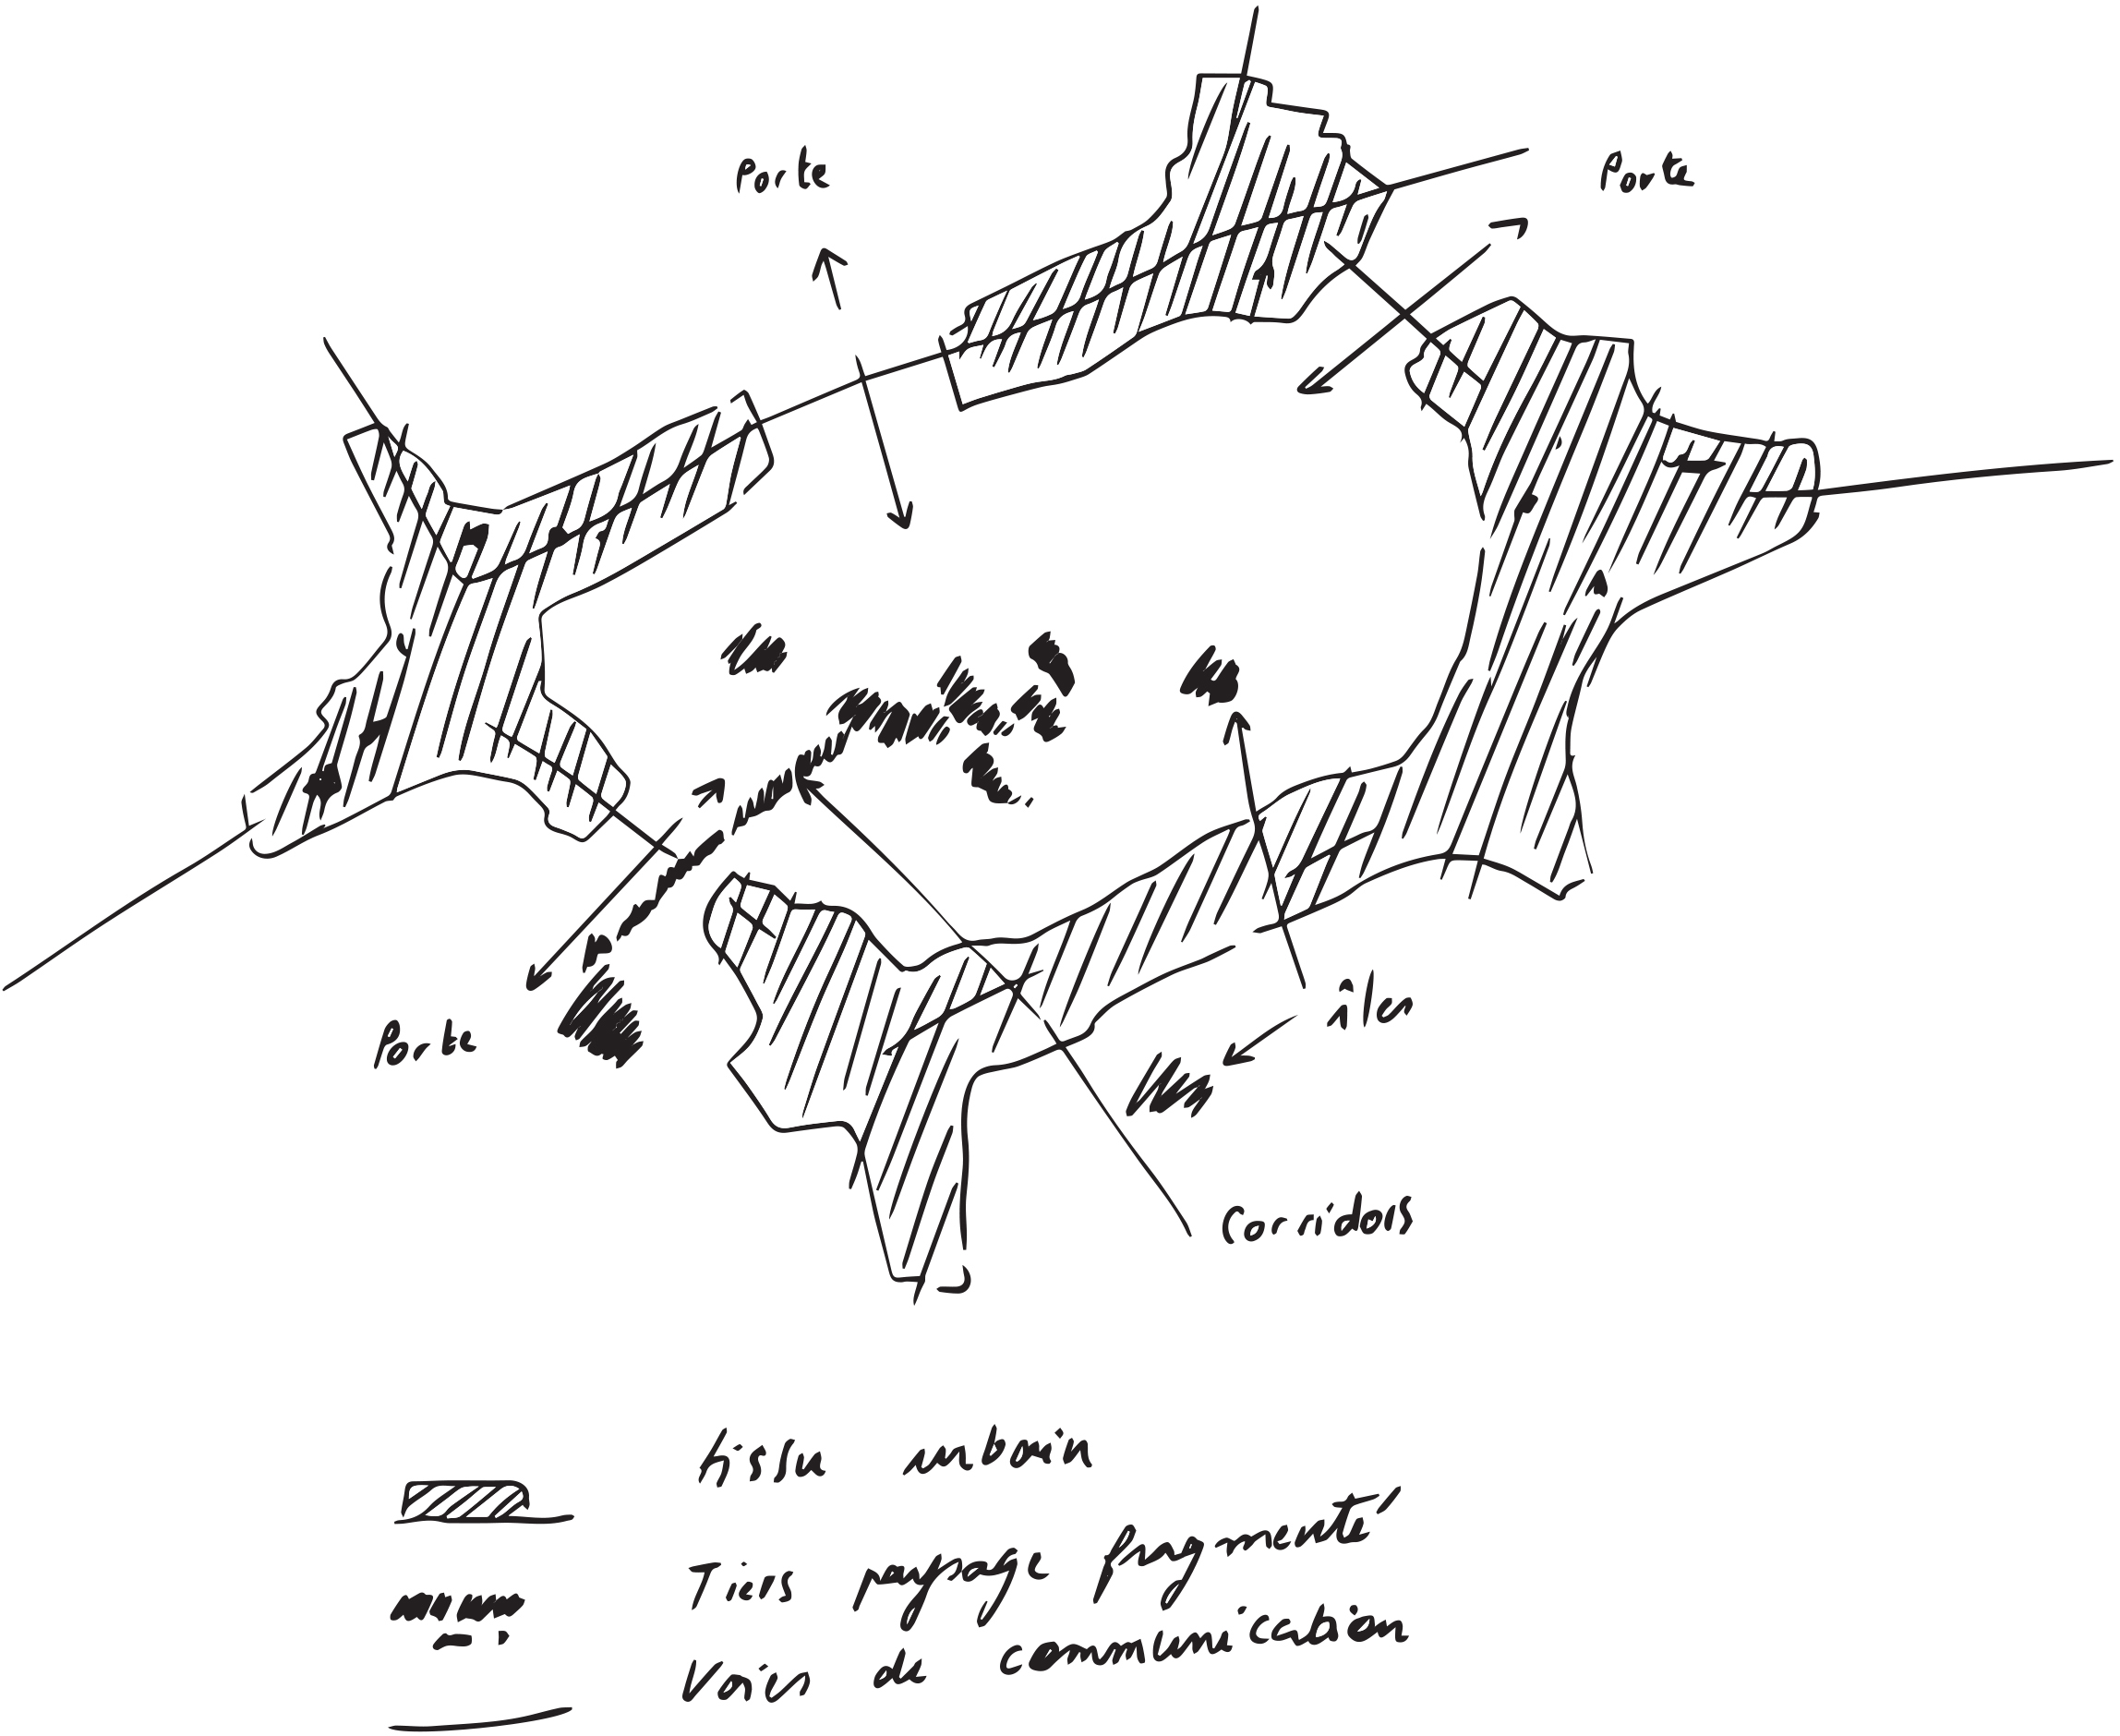 Porte
Porte
Porte
îlon
Corridors
tissu urbain
Tiers paysage fragmenté
Voies de communication